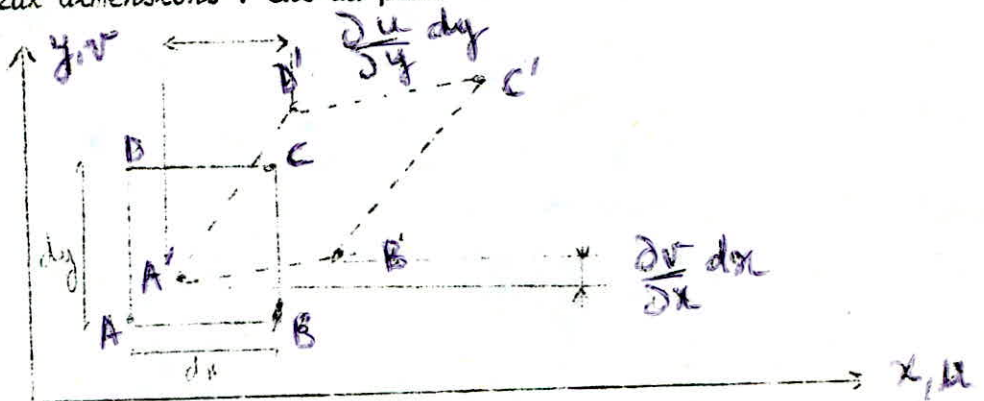 deux dimensions :
y,v
∂u/∂y dy
D'
C'
D
C
dy
A'
B'
∂v/∂x dx
A
B
dx
x,u